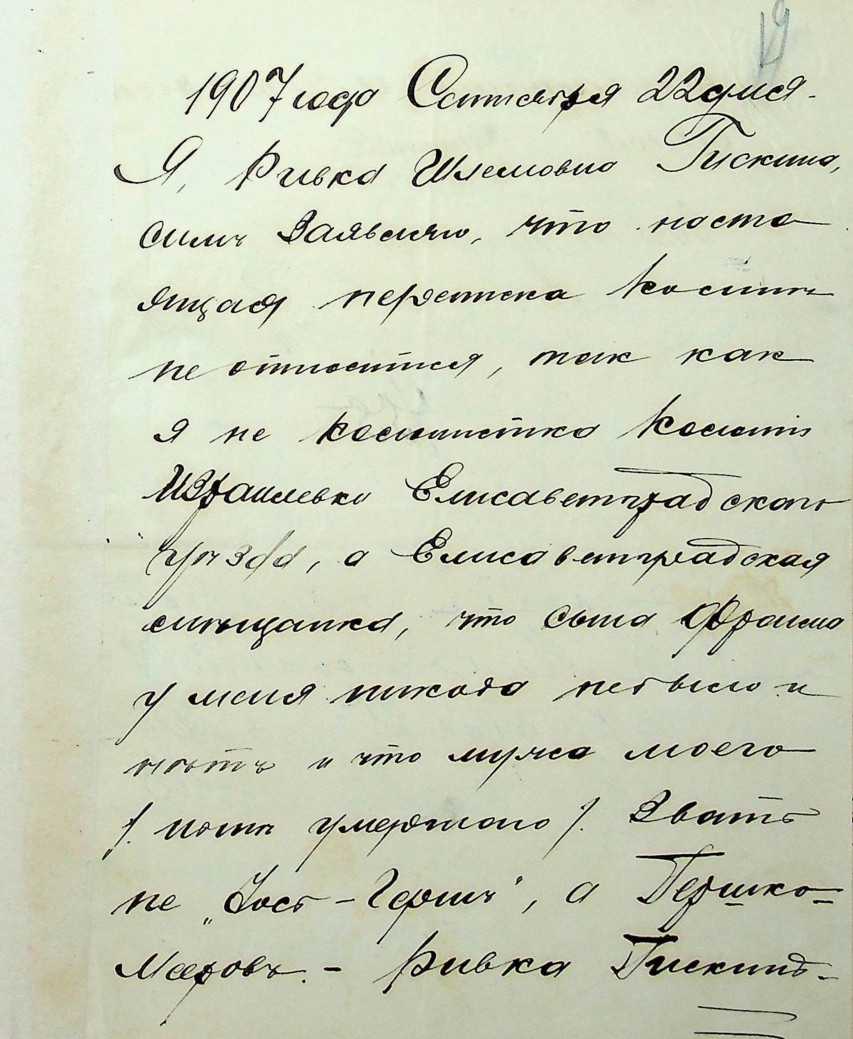 19
1907 года Сентября 22 дня.
Я, Ривка Шлемовна Пискина,
симъ заявляю, что насто
ящая переписка ко мнѣ
не относится, так как
я не колонистка Колоніи
Израилевка Елисаветградскаго
уѣзда, а Елисаветградская
мѣщанка, что сына Фроима
у меня никогда не было и
нѣтъ и что мужа моего
/. нынѣ умершаго /. Звать
не „Іось-Герш“, а Гершко-
Мееровъ. - Ривка Пискинъ.